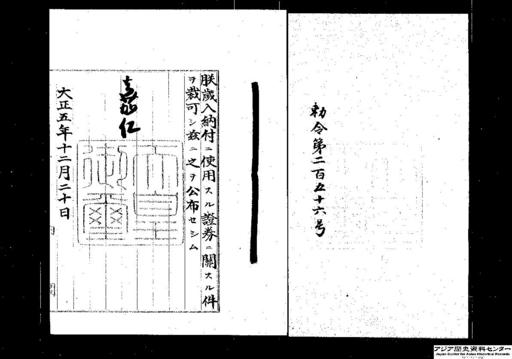 勅令第二百五十六号
朕歳入納付ニ使用スル證券ニ關スル件
ヲ裁可シ茲ニ之ヲ公布セシム
嘉仁
天皇御璽
大正五年十二月二十日
内閣
アジア歴史資料センター
Japan Center for Asian Historical Records